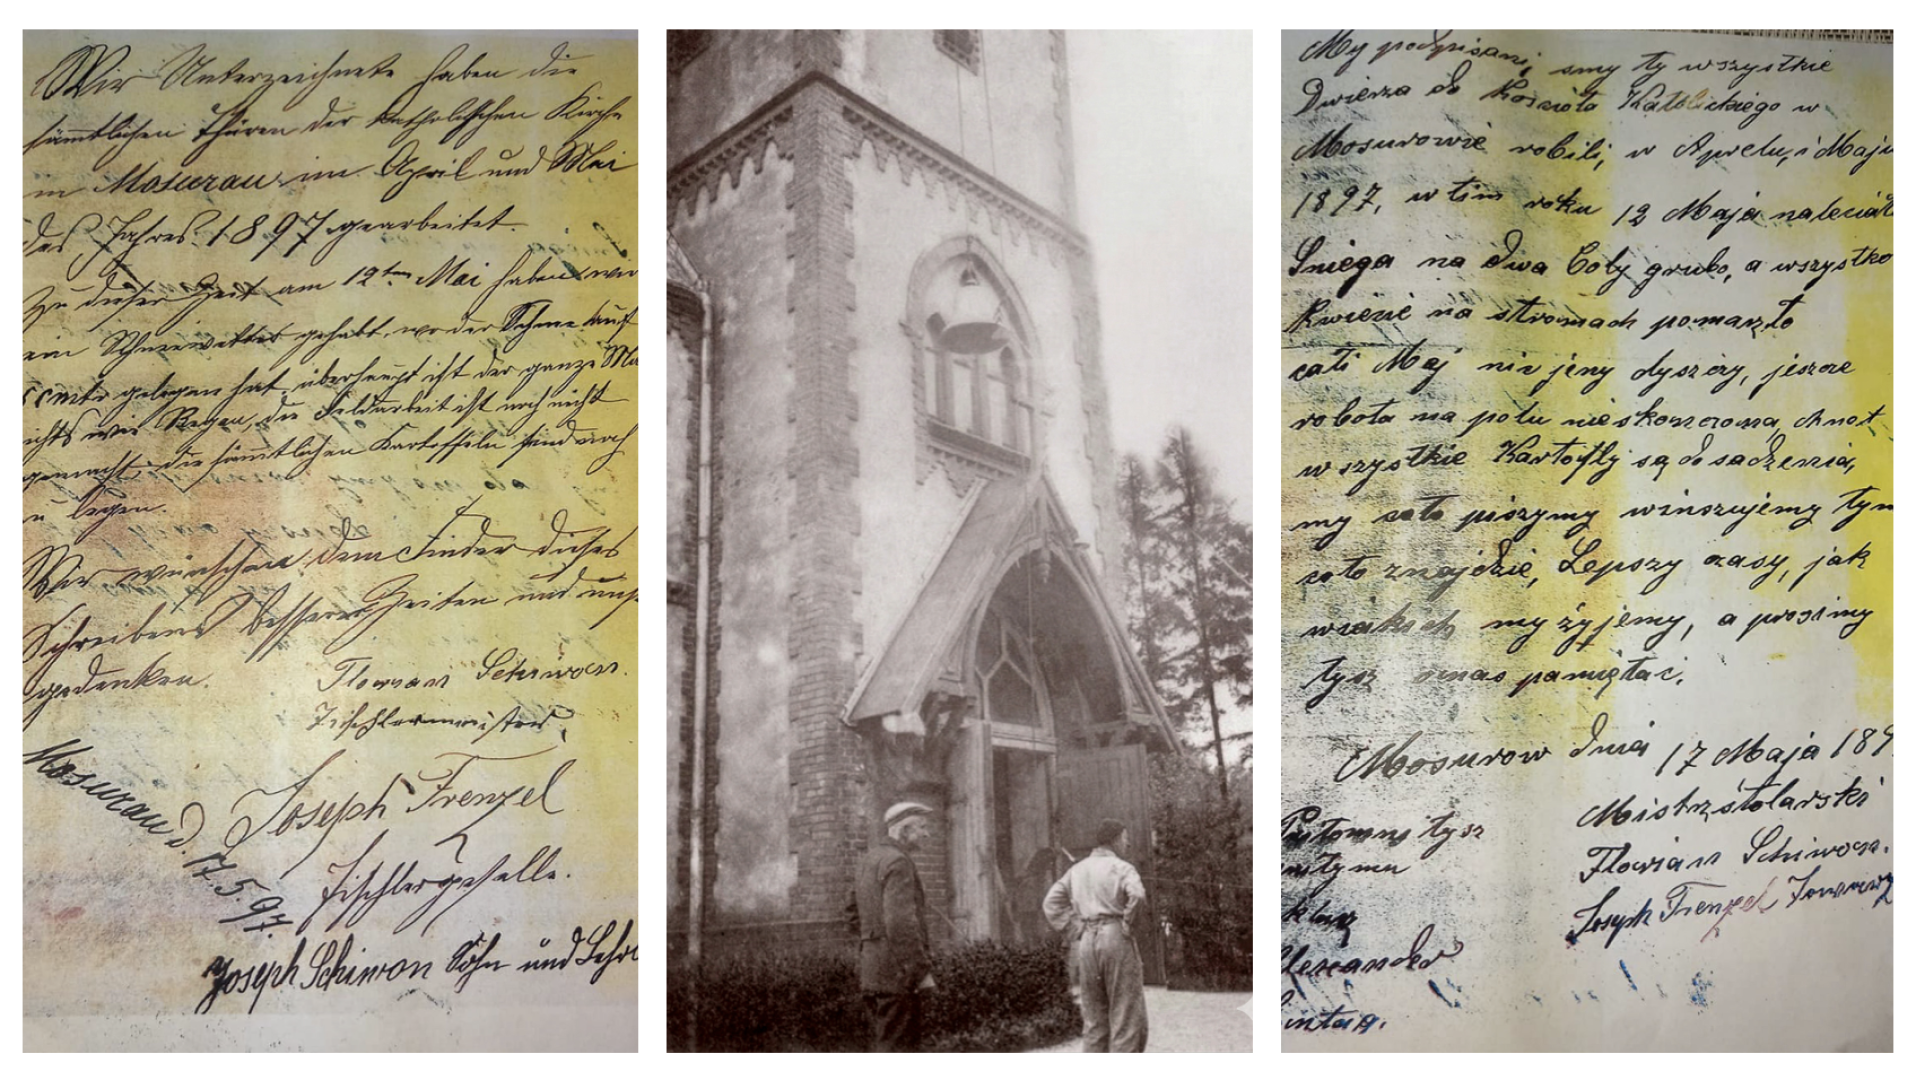 Wir Unterzeichnete haben die
sämmtlichen Thüren der katholischen Kirche
in Mosurau im April und Mai
des Jahres 1897 gearbeitet.
Zu dieser Zeit am 12ten Mai haben wir
ein Schneewetter gehabt, wo der Schnee auf
cmtr gelegen hat, überhaupt ist der ganze Ma
ichts wie Regen, die Feldarbeit ist noch nicht
gemacht, die sämmtlichen Kartoffeln sind noch
u legen.
Wir wünschen dem Finder dieses
Schreibens bessere Zeiten und uns
gedenken.
Florian Schiwon.
Tischlermeister,
Mosurau d. 17.5.97.
Joseph Frenzel
Tischlergeselle.
Joseph Schiwon Sohn und Lehr
My podpisani, smy ty wszystkie
Dwierza do Kosciola Katolickiego w
Mosurowie robili, w Aprelu, i Maju
1897, w tim roku 12 Maja naleciał
Sniega na dwa Coly grubo, a wszystko
Kwiecie na stromach pomarzło
cali Maj nic jeny dyszczy, jeszcze
robota na polu nieskonczona, chnet
wszystkie Kartofly są do sadzenia,
my coto piszymy winszujemy tym
coto znajdzie, Lepszy czasy, jak
w my żyjemy, a prosimy
tysz onas pamiętac.
Mosurow dnia 17 Maja 189
Mistrz stolarski
Florian Schiwon.
Joseph Frenzel Towarz
tysz